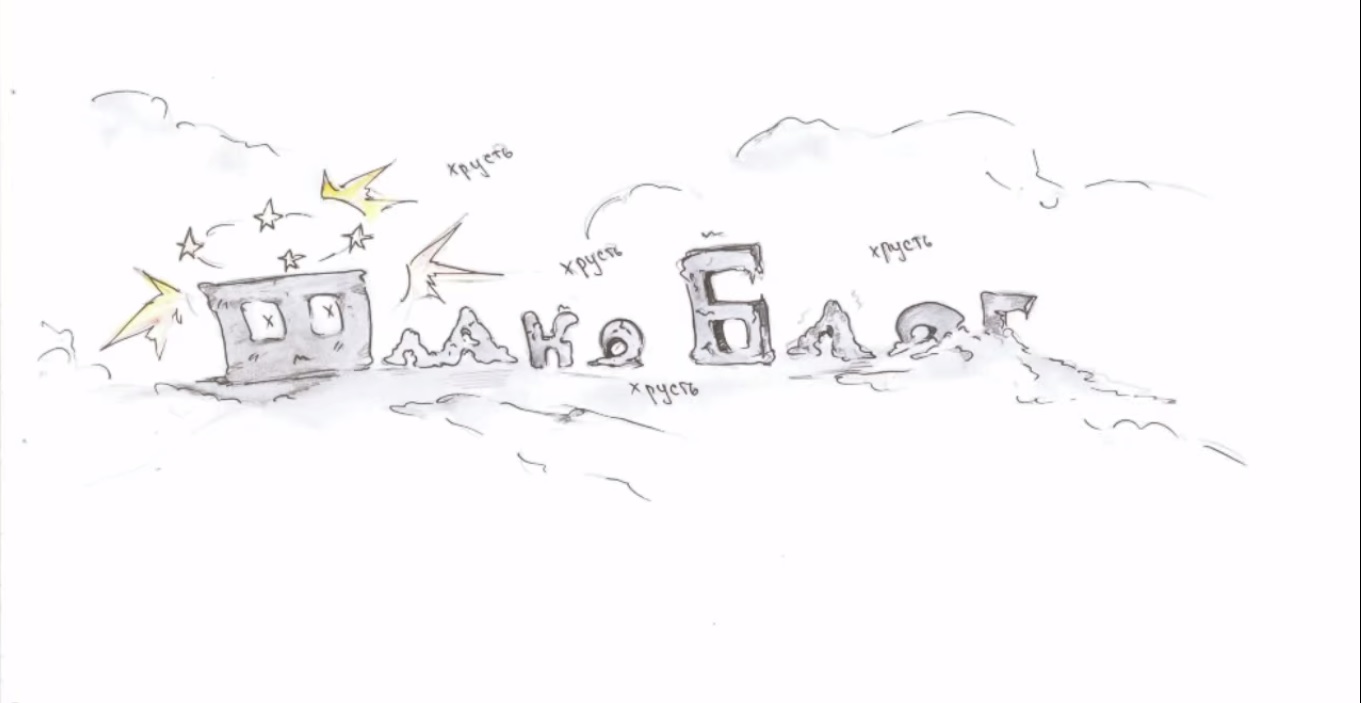 хрусть
хрусть
хрусть
лакоБлог
хрусть